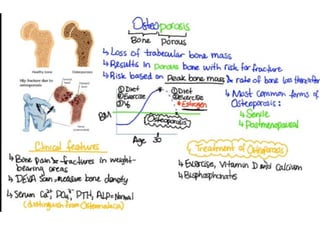 Osteoporosis
Bone Porous
↳ Loss of trabecular bone mass
↳ Results in porous bone with risk for fracture
↳ Risk based on Peak bone mass & rate of bone loss thereafter
Healthy bone
Osteoporosis
Hip fracture due to
osteoporosis
① Diet
② Exercise
① Diet
② Exercise
* Estrogen
↳ Most Common forms of
Osteoporosis:
↳ Senile
↳ Postmenopausal
Osteoporosis
Age 30
Clinical features
↳ Bone Pain & fractures in weight-
bearing areas
↳ DEXA Scan, measure bone density
↳ Serum Ca²⁺, PO₄³⁻ PTH, ALP = Normal
(distinguish from Osteomalacia)
Treatment of Osteoporosis
↳ Exercise, Vitamin D and Calcium
↳ Bisphosphonates